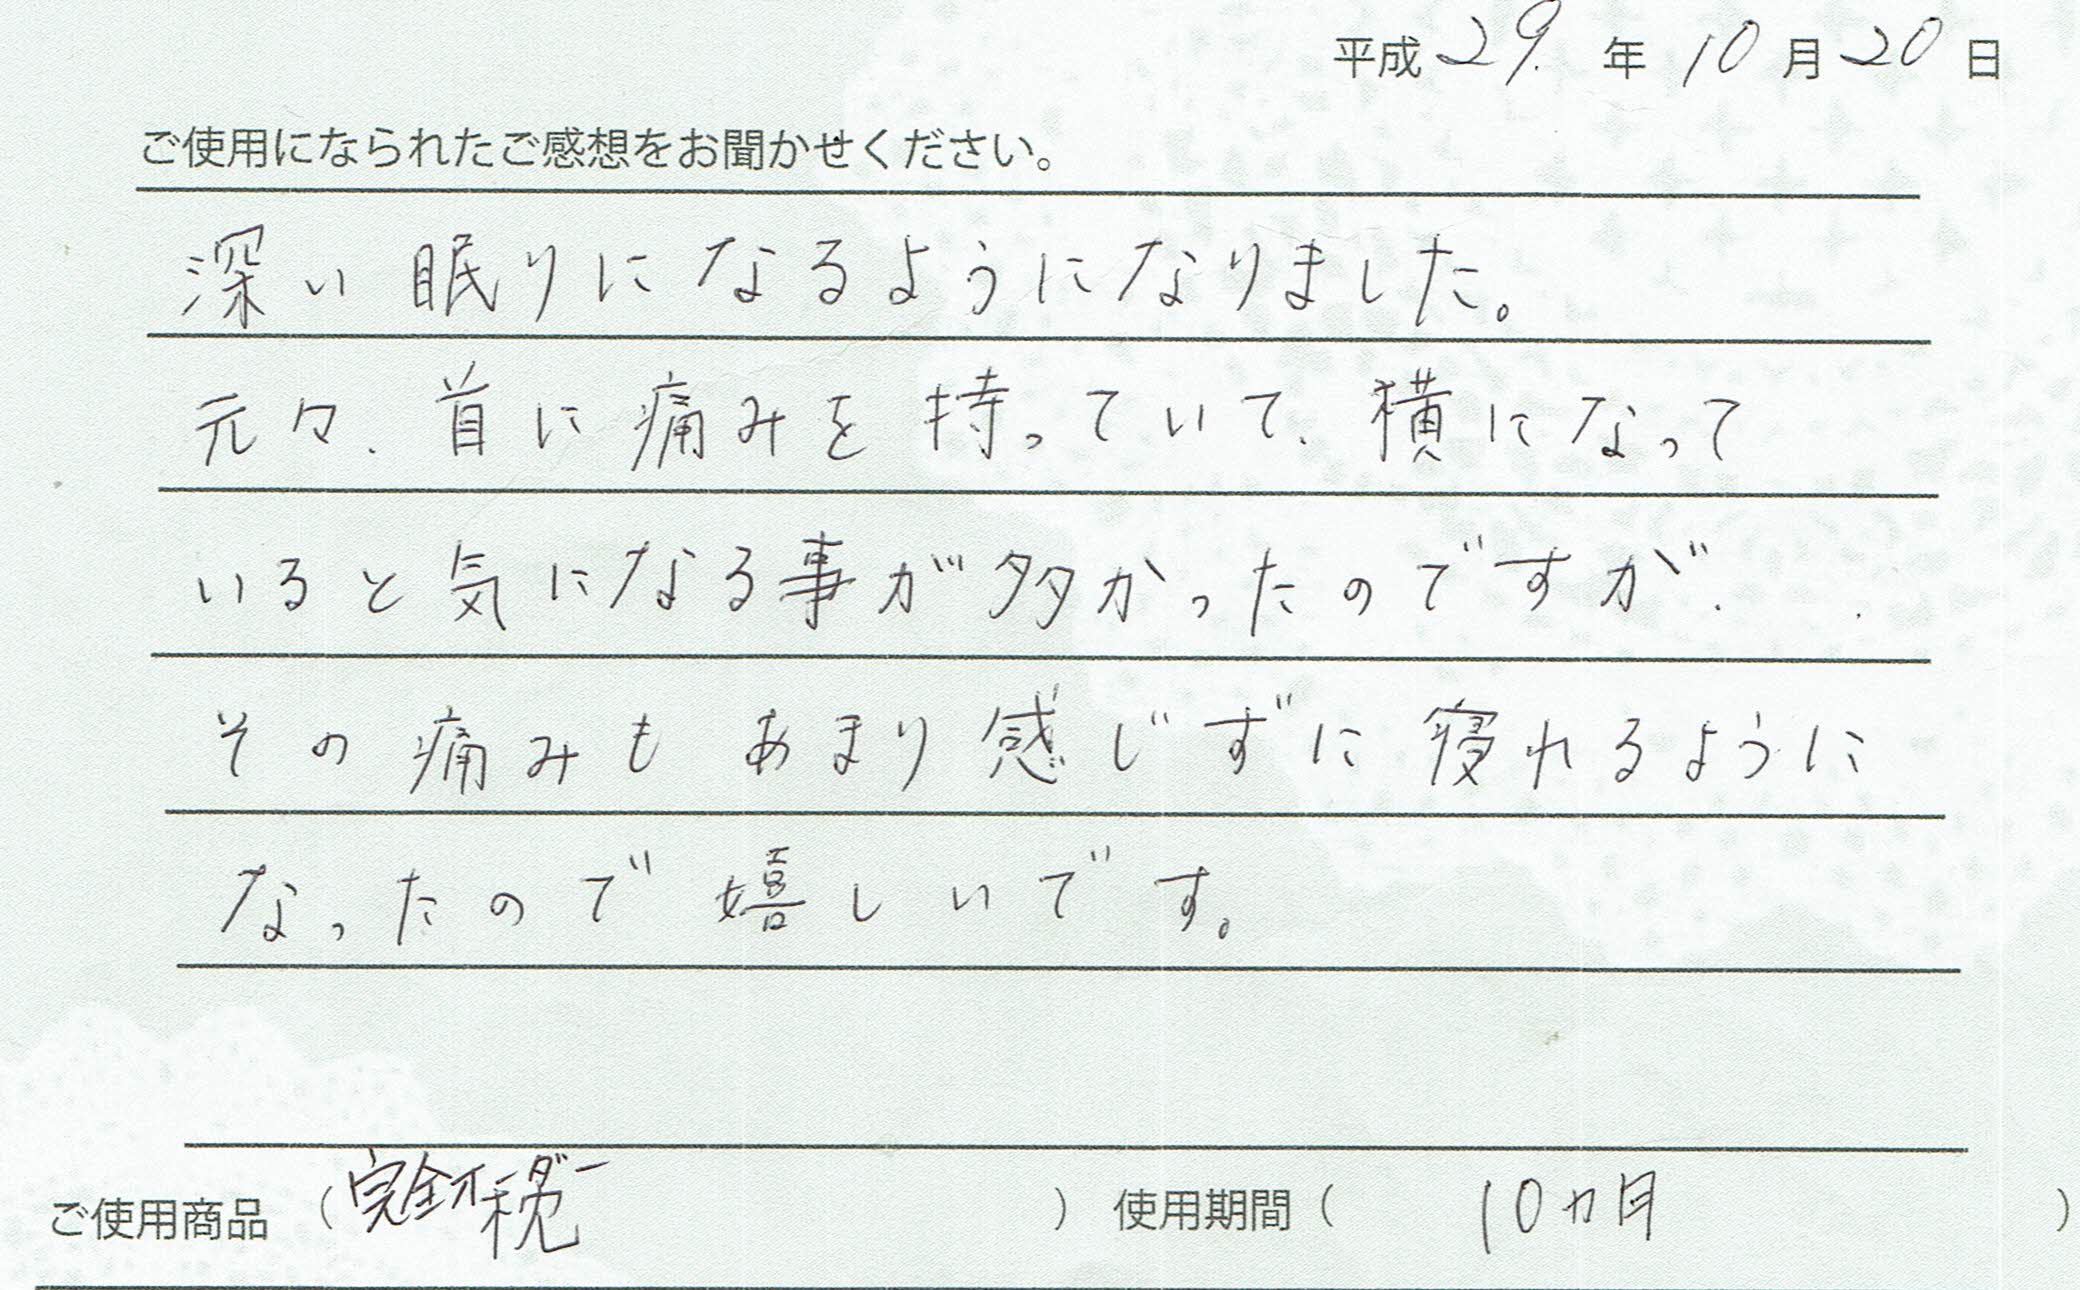 平成29.年10月20日
ご使用になられたご感想をお聞かせください。
深い眠りになるようになりました。
元々、首に痛みを持っていて、横になって
いると気になる事が多かったのですが、
その痛みもあまり感じずに寝れるように
なったので嬉しいです。
ご使用商品（完全オーダー枕）使用期間（10ヵ月）